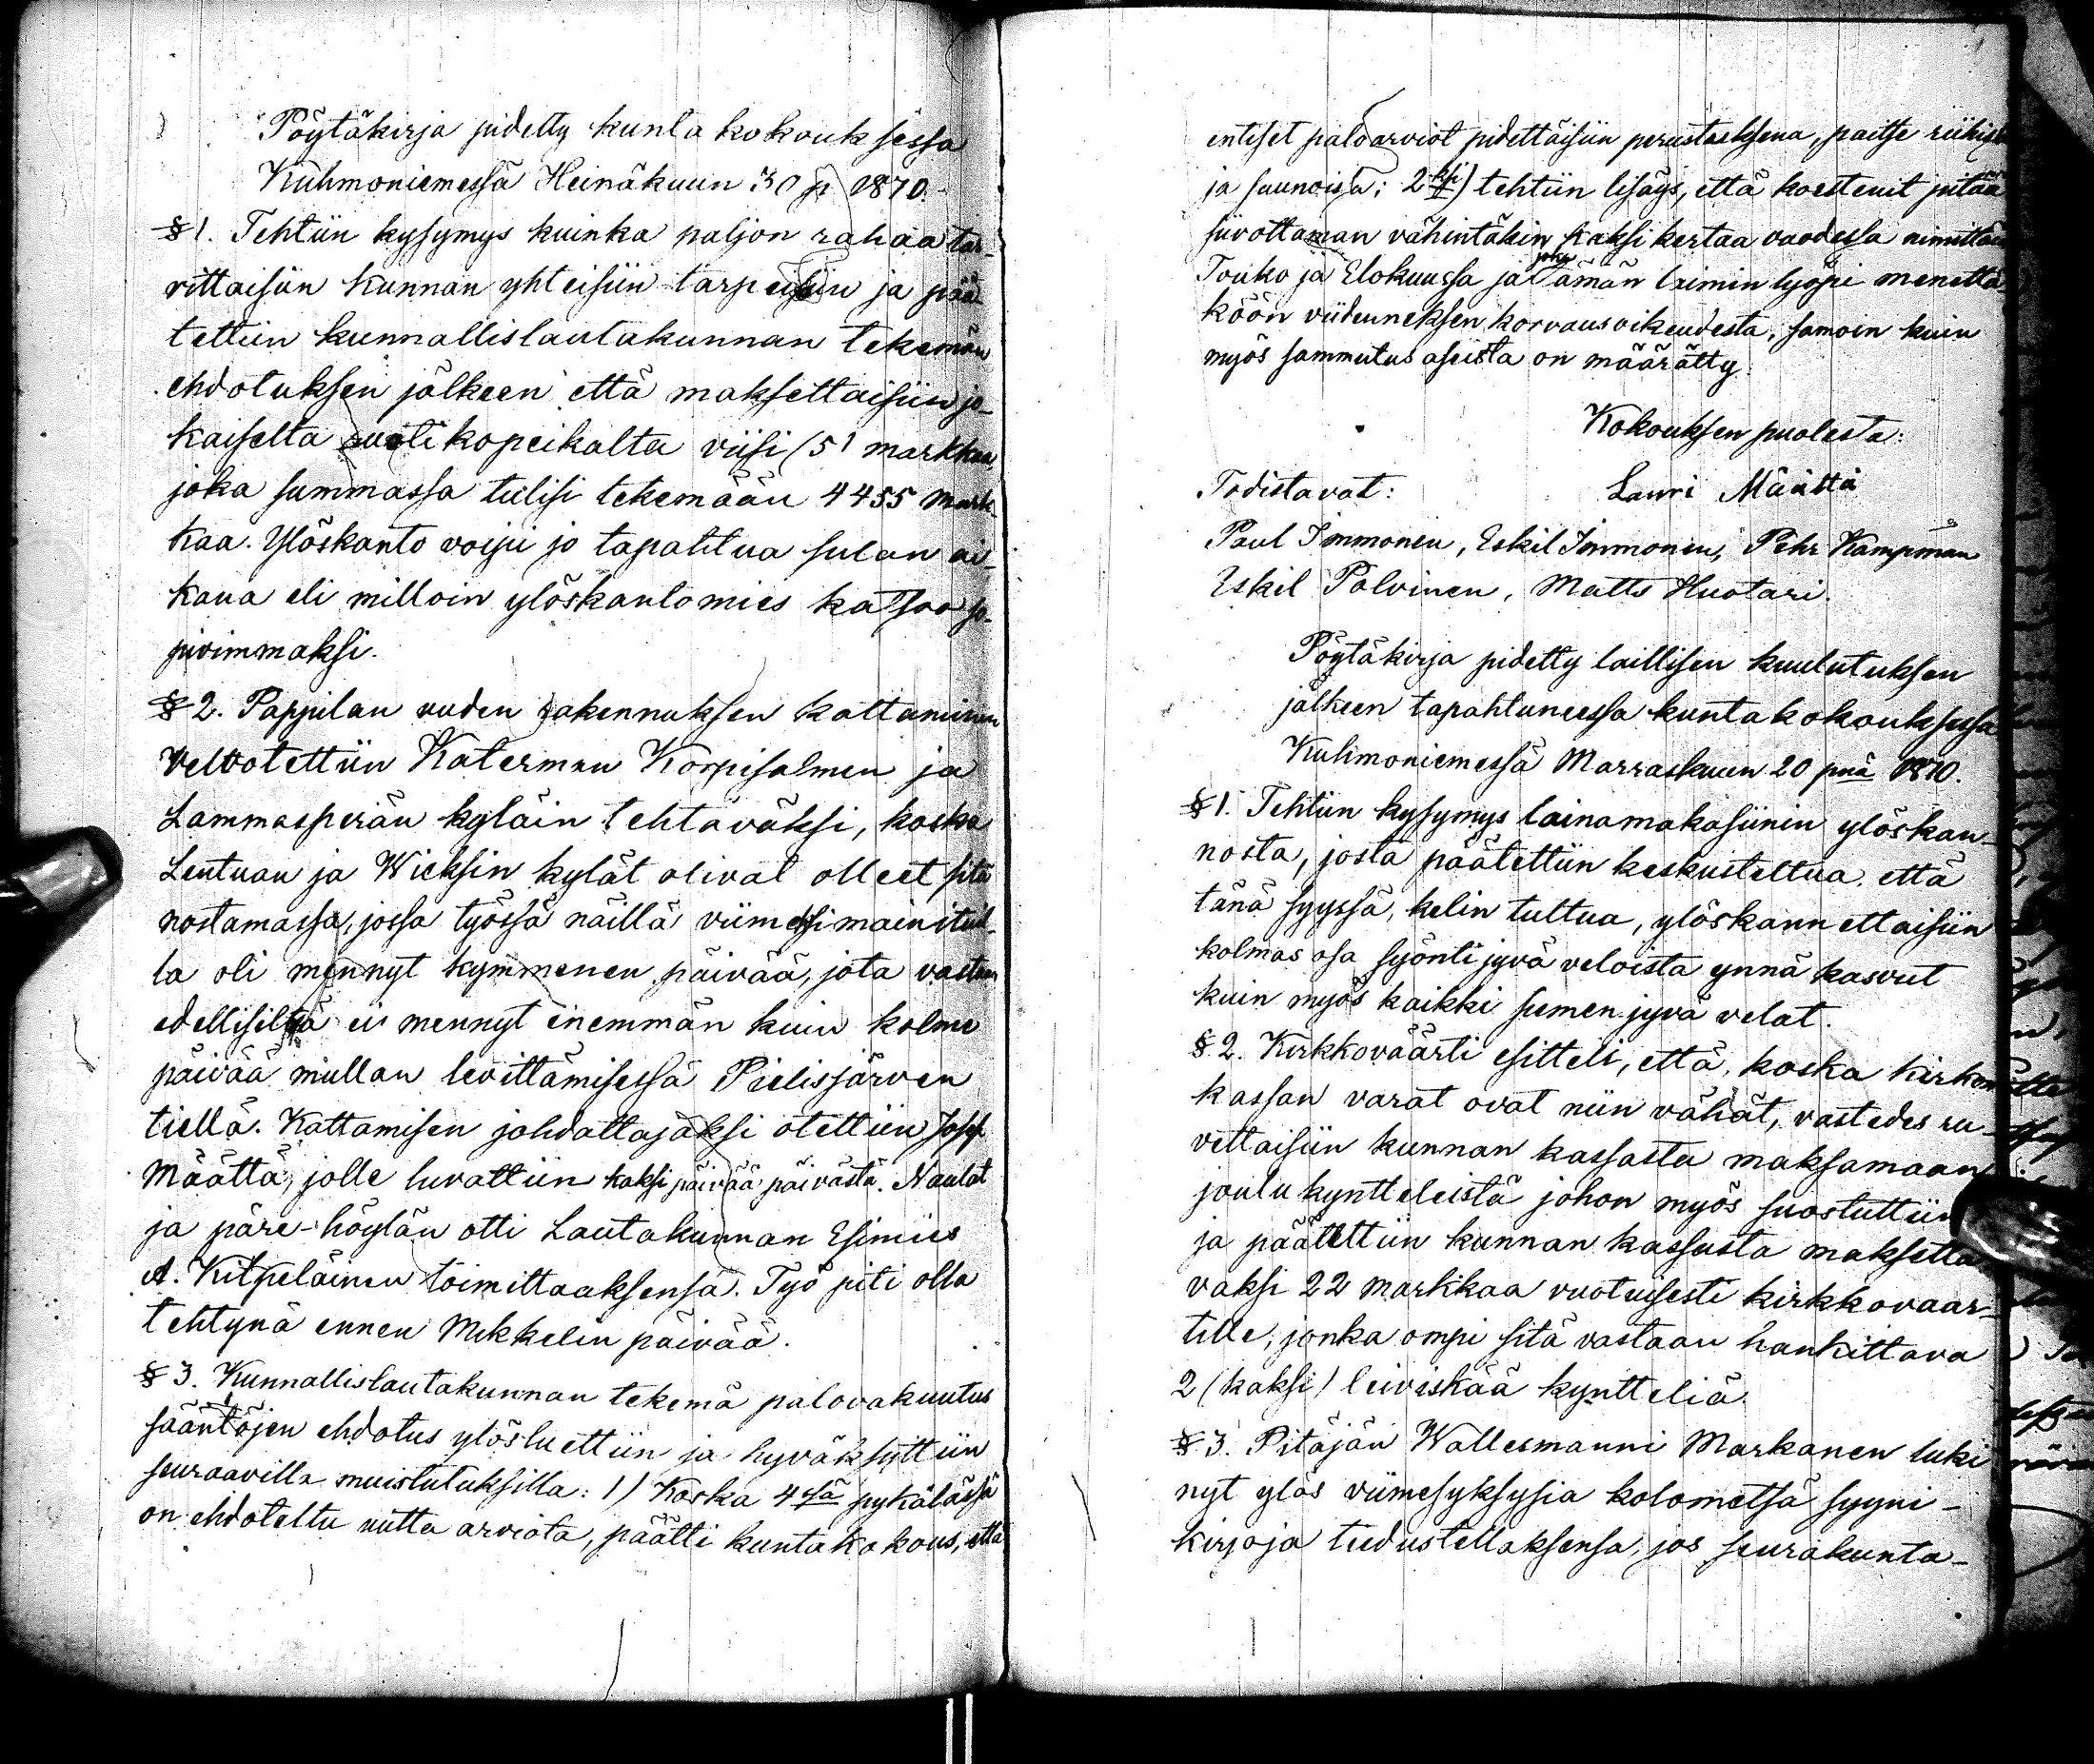 Pöytäkirja pidetty kunta kokouksessa
Kuhmoniemessä Heinäkuun 30 p 1870.
§ 1. Tehtiin kysymys kuinka paljon rahaa tar-
vittaisiin kunnan yhteisiin tarpeisiin ja pää
tettiin kunnallislautakunnan tekemän
ehdotuksen jälkeen että maksettaisiin jo-
kaiselta kopeikalta viisi (5) markkaa,
joka summassa tulisi tekemään 4455 mark-
kaa. Ylöskanto voipi jo tapahtua sulan ai-
kana eli milloin ylöskantomies katsoo so-
pivimmaksi.
§ 2. Pappilan uuden rakennuksen kattaminen
velvotettiin Katerman Korpisalmen ja
Lammasperän kyläin tehtäväksi, koska
Lentuan ja Wieksin kylät olivat olleet sitä
nostamassa, jossa työssä näillä viimeksi mainituil-
la oli mennyt kymmenen päivää, jota vastan
edellisiltä ei mennyt enemmän kuin kolme
päivää mullan levittämisessä Pielisjärven
tiellä. Kattamisen johdattajaksi otettiin Josef
Määttä, jolle luvattiin kaksi päivää päivästä. Naulat
ja päre-höylän otti Lautakunnan Esimies
A. Kilpeläinen toimittaaksensa. Työ piti olla
tehtynä ennen Mikkelin päivää.
§ 3. Kunnallislautakunnan tekemä palovakuutus
sääntöjen ehdotus ylösluettiin ja hyväksyttiin
seuraavilla muistutuksilla: 1) Koska 4ssä pykälässä
on ehdoteltu uutta arviota, päätti kuntakokous, että
entiset paloarviot pidettäisiin perustuksena, paitse riihistä
ja saunoista; 2ksi) tehtiin lisäys, että korstenit pitää
siivottaman vähintäkin kaksi kertaa vuodessa nimittäin
Touko ja Elokuussa ja joka tämän laimin lyöpi menettä
köön viidenneksen korvausoikeudesta, samoin kuin
myös sammutus aseista on määrätty.
Kokouksen puolesta:
Todistavat: Lauri Määttä
Paul Immonen, Eskil Immonen, Pehr Kampman
Eskil Polvinen, Matts Huotari.
Pöytäkirja pidetty laillisen kuulutuksen
jälkeen tapahtuneessa kuntakokouksessa
Kuhmoniemessä Marraskuun 20 pnä 1870.
§ 1. Tehtiin kysymys lainamakasiinin ylöskan-
nosta, josta päätettiin keskusteltua, että
tänä syyssä, kelin tultua, ylöskannettaisiin
kolmas osa syönti jyvä veloista ynnä kasvut
kuin myös kaikki siemen jyvä velat.
§ 2. Kirkkoväärti esitteli, että, koska kirkon
kassan varat ovat niin vähät, vastedes ru-
vettaisiin kunnan kassasta maksamaan
joulukyntteleistä johon myös suostuttiin
ja päätettiin kunnan kassasta maksetta
vaksi 22 markkaa vuotuisesti kirkkovaar-
tille, jonka ompi sitä vastaan hankittava
2 (kaksi) leiviskää kyntteliä.
§ 3. Pitäjän Wallesmanni Markanen luki
nyt ylös viimesyksysiä kolometsä syyni-
kirjoja tiedustellaksensa, jos seurakunta-